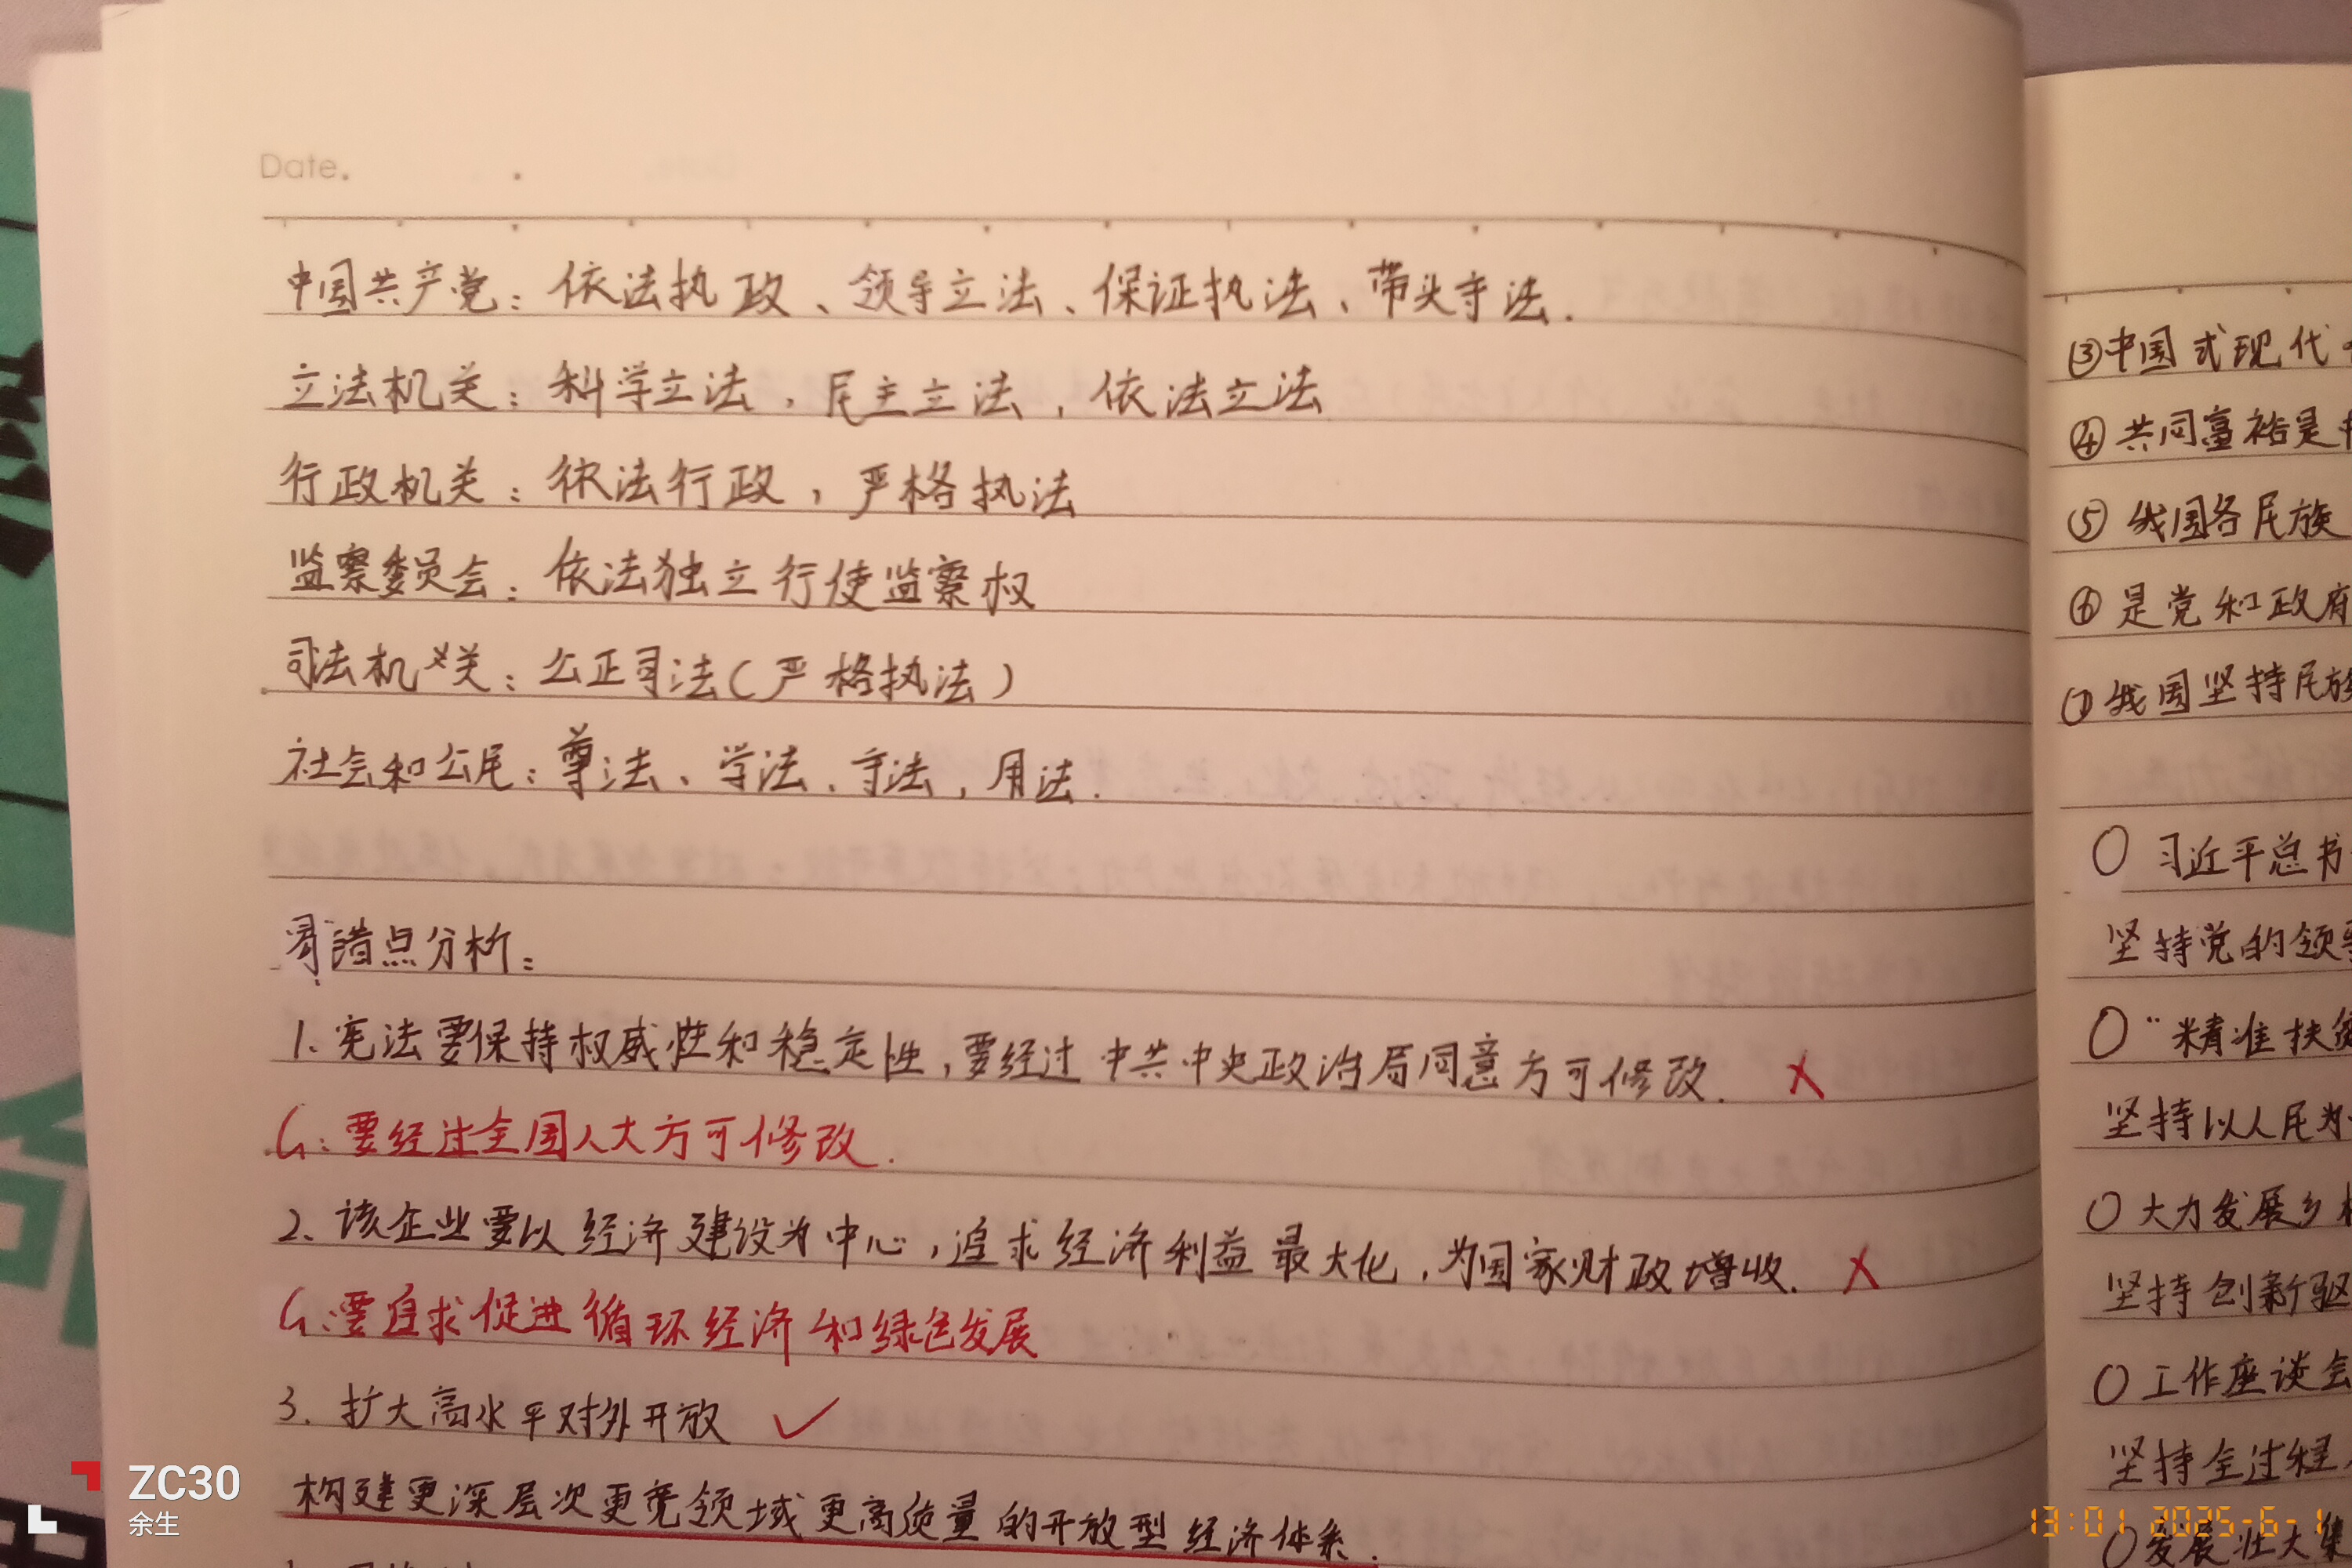 Date.
中国共产党：依法执政、领导立法、保证执法、带头守法.
立法机关：科学立法，民主立法，依法立法
行政机关：依法行政，严格执法
监察委员会：依法独立行使监察权
司法机关：公正司法（严格执法）
社会和公民：尊法、学法、守法，用法.
易错点分析：
1.宪法要保持权威性和稳定性，要经过中共中央政治局同意方可修改. ×
要经过全国人大方可修改.
2.该企业要以经济建设为中心，追求经济利益最大化，为国家财政增收. ×
要追求促进循环经济和绿色发展
3.扩大高水平对外开放 ✓
构建更深层次更宽领域更高质量的开放型经济体系.
③中国式现代
④共同富裕是
⑤我国各民族
⑥是党和政府
⑦我国坚持民族
○ 习近平总书
坚持党的领导
○“精准扶贫
坚持以人民为
○大力发展乡村
坚持创新驱
○工作座谈会
坚持全过程
○发展壮大集
ZC30
余生
13:01 2025-6-1